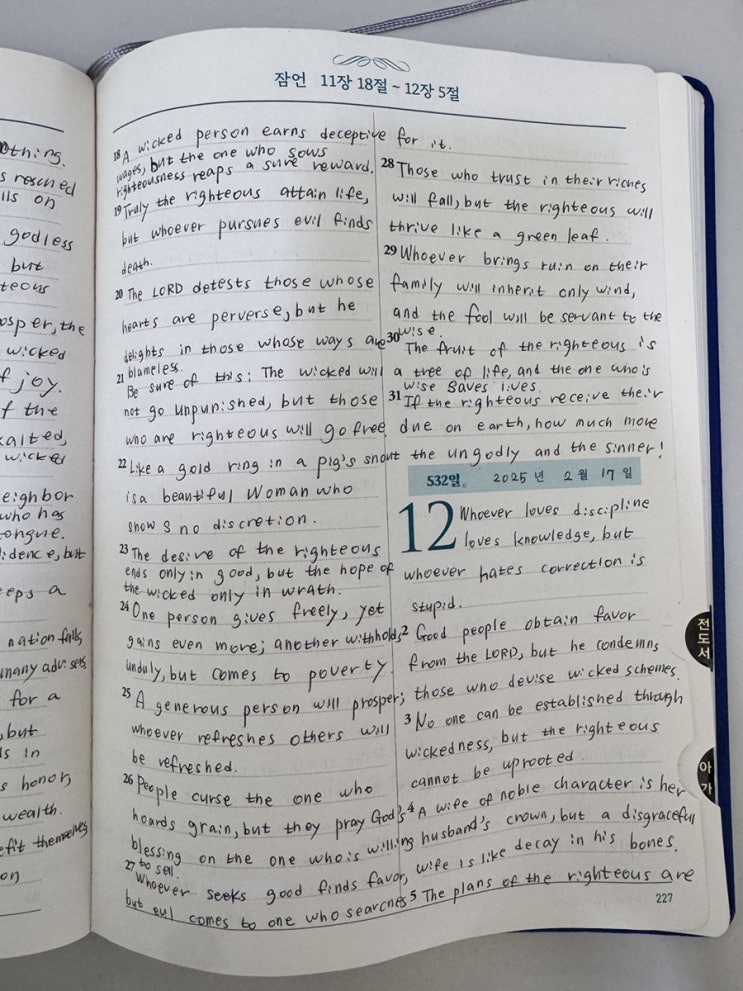 othing.
s rescued
lls on
godless
but
teous
osper, the
wicked
f joy.
f the
xalted,
wicked
eighbor
who has
tongue.
idence, but
eeps a
nation falls,
many advisers
for a
, but
ls in
s honor,
wealth.
efit themselves
on
잠언 11장 18절 ~ 12장 5절
18 A wicked person earns deceptive
wages, but the one who sows
righteousness reaps a sure reward.
19 Truly the righteous attain life,
but whoever pursues evil finds
death.
20 The LORD detests those whose
hearts are perverse, but he
delights in those whose ways are
blameless.
21 Be sure of this: The wicked will
not go unpunished, but those
who are righteous will go free.
22 Like a gold ring in a pig's snout
is a beautiful Woman who
snow s no discretion.
23 The desire of the righteous
ends only in good, but the hope of
the wicked only in wrath.
24 One person gives freely, yet
gains even more; another withholds
unduly, but comes to poverty.
25 A generous person will prosper;
whoever refreshes others will
be refreshed.
26 People curse the one who
hoards grain, but they pray God's
blessing on the one who is willing
to sell.
27 Whoever seeks good finds favor,
but evil comes to one who searches
for it.
28 Those who trust in their riches
will fall, but the righteous will
thrive like a green leaf.
29 Whoever brings ruin on their
family will inherit only wind,
and the fool will be servant to the
wise.
30 The fruit of the righteous is
a tree of life, and the one who is
wise saves lives.
31 If the righteous receive their
due on earth, how much more
the ungodly and the sinner!
532일. 2025년 2월 17일
12 Whoever loves discipline
loves knowledge, but
whoever hates correction is
stupid.
2 Good people obtain favor
from the LORD, but he condemns
those who devise wicked schemes.
3 No one can be established through
wickedness, but the righteous
cannot be uprooted.
4 A wife of noble character is her
husband's crown, but a disgraceful
wife is like decay in his bones.
5 The plans of the righteous are
227
전도서
아가